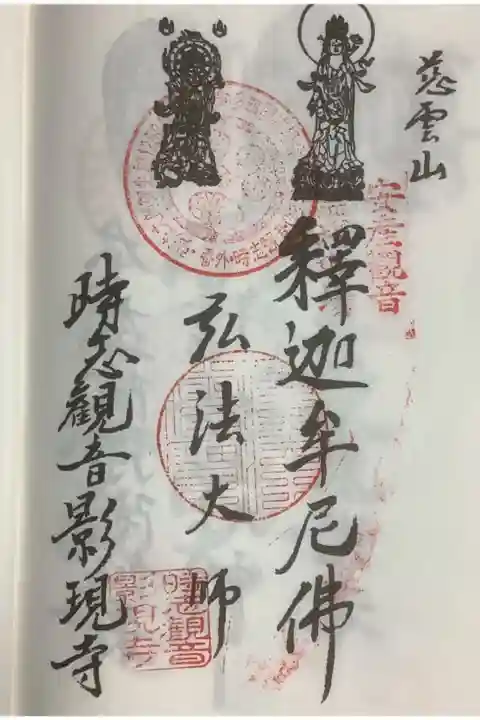 慈雲山
安産観音
釋迦牟尼佛
弘法大師
時志觀音影現寺
時志觀音
影現寺